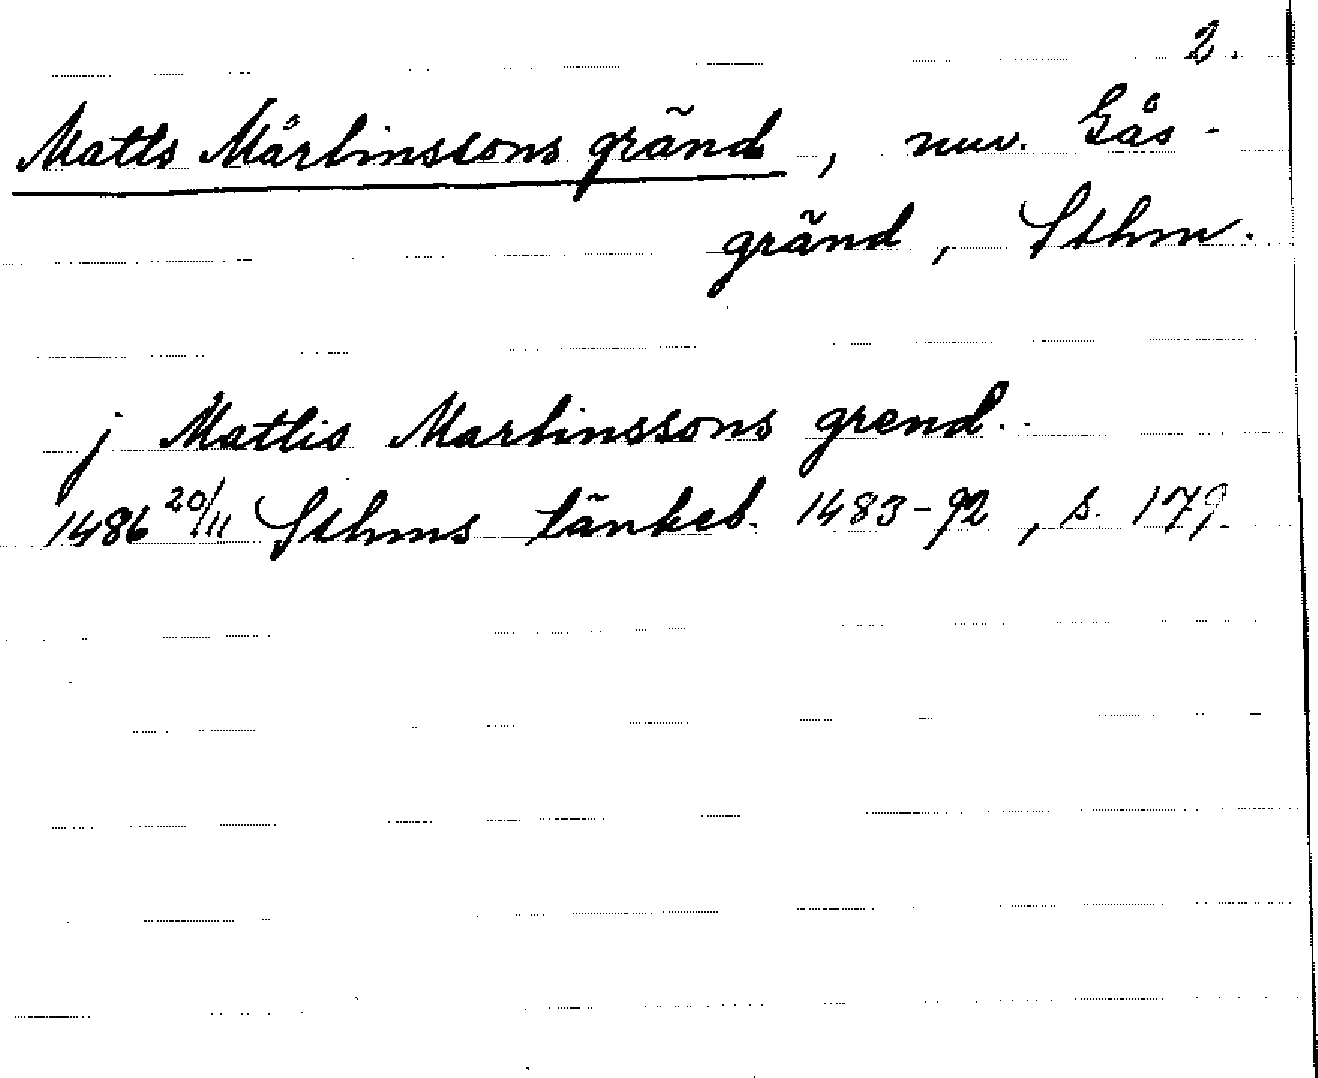 2.
Matts Mårtinssons gränd, nuv. Gås-
gränd, Sthm.
j Mattis Martinssons grend.
1486 20/11 Sthms tänkeb. 1483-92, s. 179